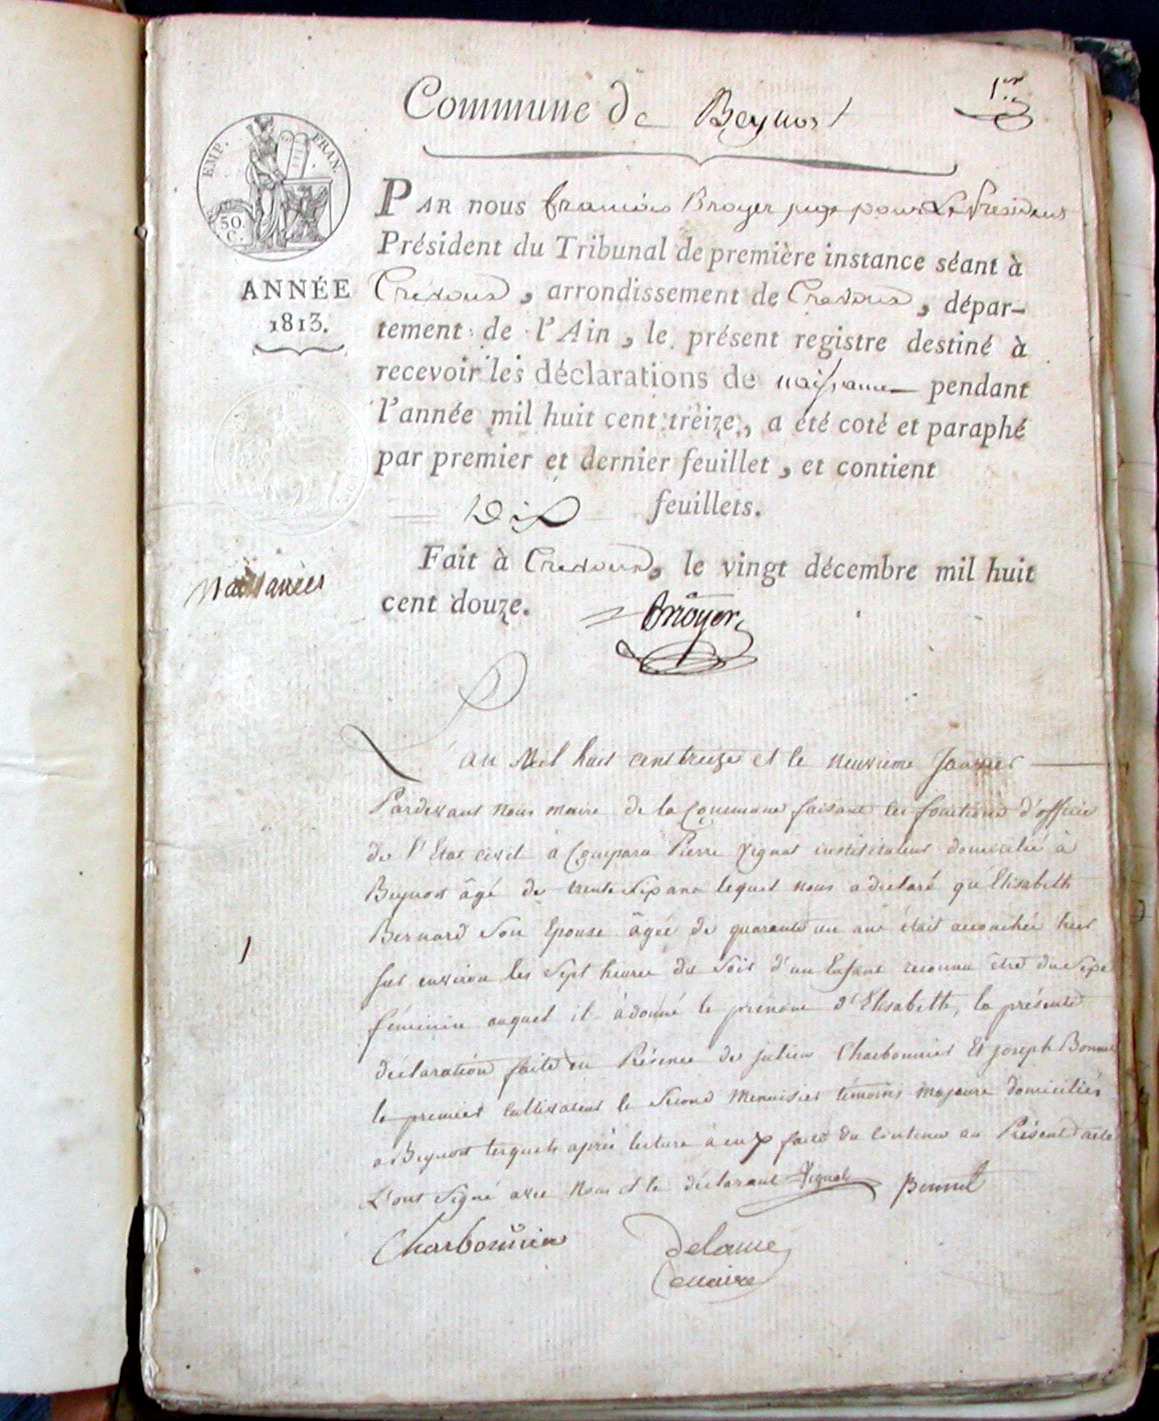 Commune de Beynost
1er
EMP. FRAN.
50 C.
PAR nous francois Broyer juge pour le President
Président du Tribunal de première instance séant à
ANNÉE
1813.
Trévoux, arrondissement de Trévoux, dépar-
tement de l'Ain, le présent registre destiné à
recevoir les déclarations de naissance pendant
l'année mil huit cent treize, a été coté et paraphé
par premier et dernier feuillet, et contient
Dix feuillets.
Fait à Trévoux, le vingt décembre mil huit
cent douze.
Broyer
Naissances
L'an Mil huit cent treize et le neuvieme Janvier
Pardevant nous maire de la Commune faisant les fonctions d'officier
de l'Etat civil a Comparu Pierre Vignat instituteur domicilié à
Beynost âgé de trente sept ans lequel nous a déclaré qu'Elisabeth
Bernard son Epouse âgée de quarante un ans était accouchée hier
sur environ les sept heures du soir d'un Enfant reconnu être du sexe
1
féminin auquel il a donné le prénom d'Elisabeth, la présente
déclaration faite en Présence de Julien Charbonnier Et joseph Bonnet
le premier cultivateur le second menuisier témoins majeurs domiciliés
a Beynost lesquels après lecture à eux faite du contenu au Présent acte
L'ont signé avec nous et le déclarant Vignat Bonnet
Charbonnier
Delaune
maire